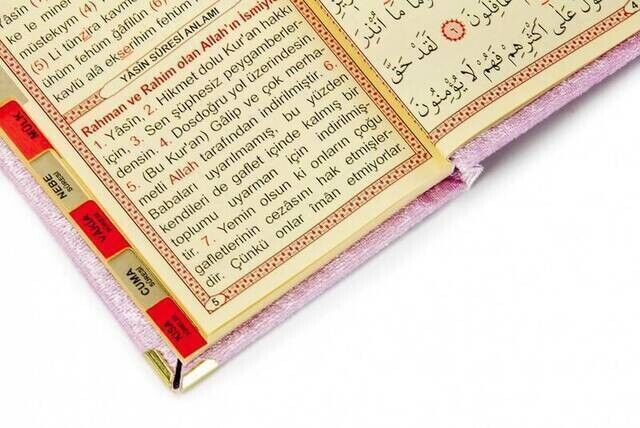 Yâsîn
müstekıym (4) Li tünzira kavmen
(5)
ühüm fehüm ğafilûn (6)
kavlü alâ ekserihim fehüm
YÂSİN SÛRESİ ANLAMI
Rahman ve Rahim olan Allah'ın İsmiyle
1. Yâsîn, 2. Hikmet dolu Kur'an hakkı
için, 3. Sen şüphesiz peygamberler-
densin. 4. Dosdoğru yol üzerindesin.
5. (Bu Kur'an) Gâlip ve çok merha-
metli Allah tarafından indirilmiştir. 6.
Babaları uyarılmamış, bu yüzden
kendileri de gaflet içinde kalmış bir
toplumu uyarman için indirilmiş-
tir. 7. Yemin olsun ki onların çoğu
gafletlerinin cezasını hak etmişler-
dir. Çünkü onlar îmân etmiyorlar.
5
غَافِلُونَ ﴿٦﴾ لَقَدْ حَقَّ
الْقَوْلُ عَلَى أَكْثَرِهِمْ فَهُمْ لَا يُؤْمِنُونَ
MÜLK
NEBE
SÛRESİ
VÂKIA
SÛRESİ
CUMA
SÛRESİ
KISA
SÛRELER